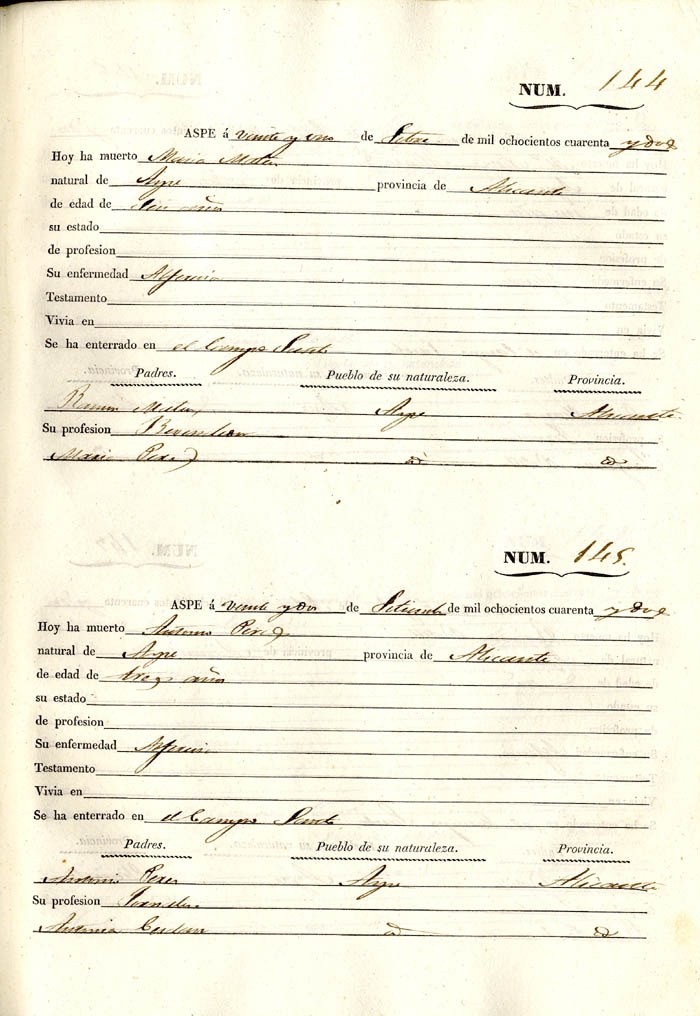 NUM. 144
ASPE á veinte y uno de Setbre de mil ochocientos cuarenta y dos
Hoy ha muerto Maria
natural de Aspe provincia de Alicante
de edad de años
su estado
de profesion
Su enfermedad Alferecia
Testamento
Vivia en
Se ha enterrado en el Campo Santo
Padres. Pueblo de su naturaleza. Provincia.
Ramon Aspe Alicante
Su profesion
Maria Perez id id
NUM. 145.
ASPE á veinte y dos de Setiembre de mil ochocientos cuarenta y dos
Hoy ha muerto Antonio Perez
natural de Aspe provincia de Alicante
de edad de tres años
su estado
de profesion
Su enfermedad Alferecia
Testamento
Vivia en
Se ha enterrado en el Campo Santo
Padres. Pueblo de su naturaleza. Provincia.
Antonio Perez Aspe Alicante
Su profesion
Antonia id id